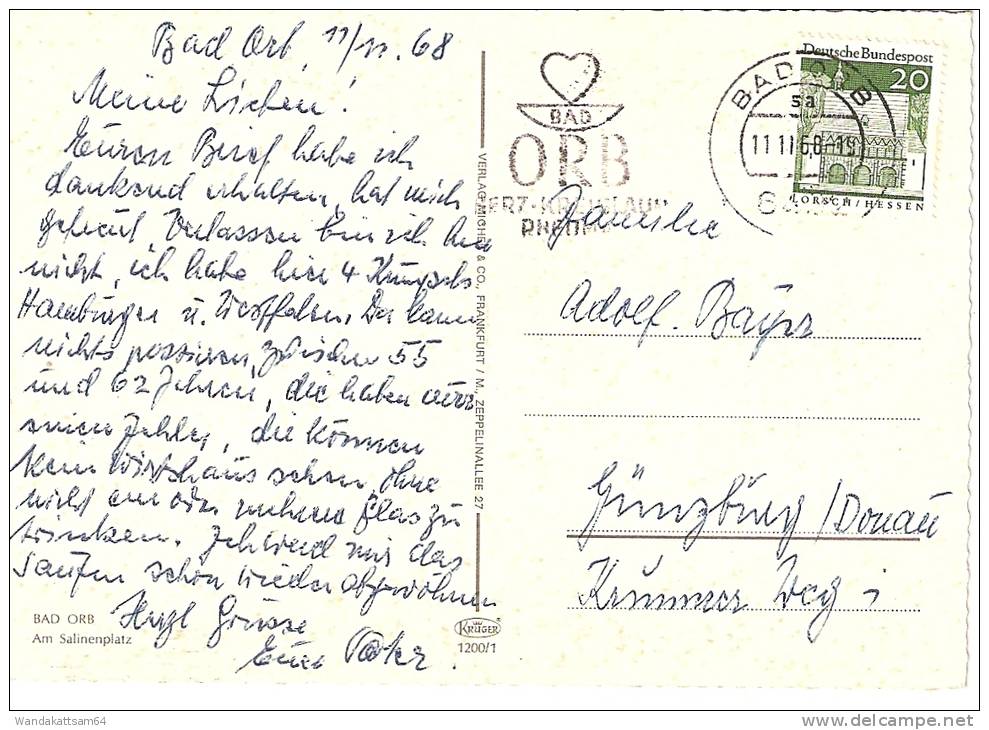 Bad Orb, 11/11. 68
Meine Lieben!
Euren Brief habe ich
dankend erhalten, hat mich
gefreut, Verlassen bin ich hier
nicht, ich habe hier 4 Kumpels
Hamburger u. Westfalen. Da kann
nichts passieren, zwischen 55
und 62 Jahren, die haben nur
einen Fehler, die können
kein Wirtshaus sehen, ohne
nicht ein oder mehrere Glas zu
trinken. Ich werd mir das
Saufen schon wieder abgewöhnen
Herzl Grüsse
Euer Vater.
BAD ORB
Am Salinenplatz
VERLAG MICHEL & CO., FRANKFURT / M., ZEPPELINALLEE 27
KRÜGER
1200/1
BAD
ORB
HERZ-KREISLAUF
RHEUMA
BAD ORB
sa
11 11 68-19
Deutsche Bundespost
20
LORSCH/HESSEN
Familie
Adolf. Bayer
Günzburg/Donau
Krummer Weg
Wandakattsam64
delcampe.net